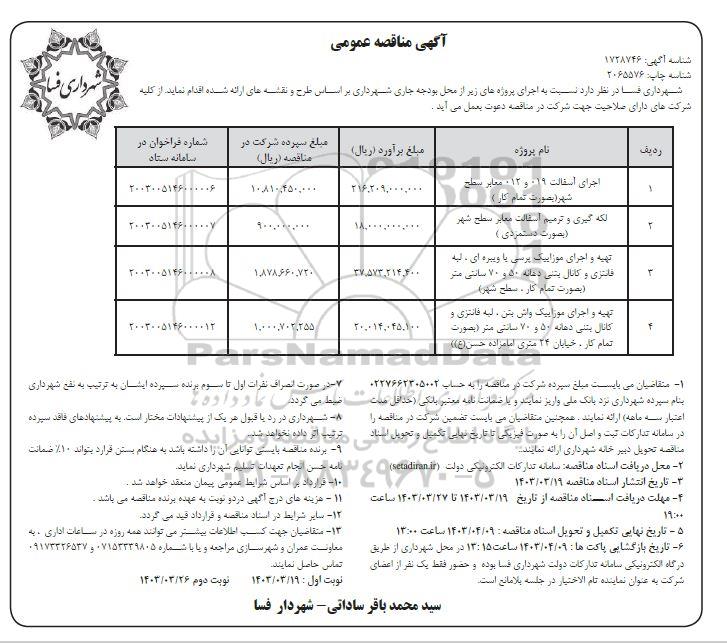 آگهی مناقصه عمومی
شهرداری فسا
شناسه آگهی: ۱۷۲۸۷۴۶
شناسه چاپ: ۲۰۶۵۵۷۶
شهرداری فسا در نظر دارد نسبت به اجرای پروژه های زیر از محل بودجه جاری شهرداری بر اساس طرح و نقشه های ارائه شده اقدام نماید. از کلیه
شرکت های دارای صلاحیت جهت شرکت در مناقصه دعوت بعمل می آید .
ردیف نام پروژه مبلغ برآورد (ریال) مبلغ سپرده شرکت در مناقصه (ریال) شماره فراخوان در سامانه ستاد
۱ اجرای آسفالت ۰۱۹ و ۰۱۲ معابر سطح شهر(بصورت تمام کار ) ۲۱۶,۲۰۹,۰۰۰,۰۰۰ ۱۰,۸۱۰,۴۵۰,۰۰۰ ۲۰۰۳۰۰۵۱۴۶۰۰۰۰۰۶
۲ لکه گیری و ترمیم آسفالت معابر سطح شهر (بصورت دستمزدی ) ۱۸,۰۰۰,۰۰۰,۰۰۰ ۹۰۰,۰۰۰,۰۰۰ ۲۰۰۳۰۰۵۱۴۶۰۰۰۰۰۷
۳ تهیه و اجرای موزاییک پرسی یا ویبره ای ، لبه فانتزی و کانال بتنی دهانه ۵۰ و ۷۰ سانتی متر (بصورت تمام کار ، سطح شهر) ۳۷,۵۷۳,۲۱۴,۴۰۰ ۱,۸۷۸,۶۶۰,۷۲۰ ۲۰۰۳۰۰۵۱۴۶۰۰۰۰۰۸
۴ تهیه و اجرای موزاییک واش بتن ، لبه فانتزی و کانال بتنی دهانه ۵۰ و ۷۰ سانتی متر (بصورت تمام کار ، خیابان ۲۴ متری امامزاده حسن(ع)) ۲۰,۰۱۴,۰۴۵,۱۰۰ ۱,۰۰۰,۷۰۲,۲۵۵ ۲۰۰۳۰۰۵۱۴۶۰۰۰۰۱۲
ParsNamadData
۱- متقاضیان می بایست مبلغ سپرده شرکت در مناقصه را به حساب ۰۲۲۷۶۶۲۳۰۵۰۰۲
بنام سپرده شهرداری نزد بانک ملی واریز نمایند و یا ضمانت نامه معتبر بانکی (حداقل مدت
اعتبار سه ماهه) ارائه نمایند . همچنین متقاضیان می بایست تضمین شرکت در مناقصه را
در سامانه تدارکات ثبت و اصل آن را به صورت فیزیکی تا تاریخ نهایی تکمیل و تحویل اسناد
مناقصه تحویل دبیر خانه شهرداری ارائه نمایند.
۲- محل دریافت اسناد مناقصه: سامانه تدارکات الکترونیکی دولت (setadiran.ir)
۳- تاریخ انتشار اسناد مناقصه ۱۴۰۳/۰۳/۱۹
۴- مهلت دریافت اسناد مناقصه از تاریخ ۱۴۰۳/۰۳/۱۹ تا ۱۴۰۳/۰۳/۲۷ ساعت
۱۹:۰۰
۵ - تاریخ نهایی تکمیل و تحویل اسناد مناقصه : ۱۴۰۳/۰۴/۰۹ ساعت ۱۳:۰۰
۶- تاریخ بازگشایی پاکت ها : ۱۴۰۳/۰۴/۰۹ ساعت۱۳:۱۵ در محل شهرداری از طریق
درگاه الکترونیکی سامانه تدارکات دولت شهرداری فسا بوده و حضور فقط یک نفر از اعضای
شرکت به عنوان نماینده تام الاختیار در جلسه بلامانع است.
۷-در صورت انصراف نفرات اول تا سوم برنده سپرده ایشان به ترتیب به نفع شهرداری
ضبط می گردد.
۸- شهرداری در رد یا قبول هر یک از پیشنهادات مختار است. به پیشنهادهای فاقد سپرده
ترتیب اثر داده نخواهد شد.
۹- برنده مناقصه بایستی توانایی آن را داشته باشد به هنگام بستن قرارد بتواند ۱۰٪ ضمانت
نامه حسن انجام تعهدات تسلیم شهرداری نماید.
۱۰- قرارداد بر اساس شرایط عمومی پیمان منعقد خواهد شد .
۱۱ - هزینه های درج آگهی دردو نوبت به عهده برنده مناقصه می باشد .
۱۲- سایر شرایط در اسناد مناقصه و قرارداد قید می گردد.
۱۳- متقاضیان جهت کسب اطلاعات بیشتر می توانند همه روزه در ساعات اداری ، به
معاونت عمران و شهرسازی مراجعه و یا با شماره ۰۷۱۵۳۳۳۹۸۰۵ و ۰۹۱۷۳۳۲۶۵۳۷
تماس حاصل نمایند.
نوبت اول : ۱۴۰۳/۰۳/۱۹ نوبت دوم ۱۴۰۳/۰۳/۲۶
سید محمد باقر ساداتی- شهردار فسا